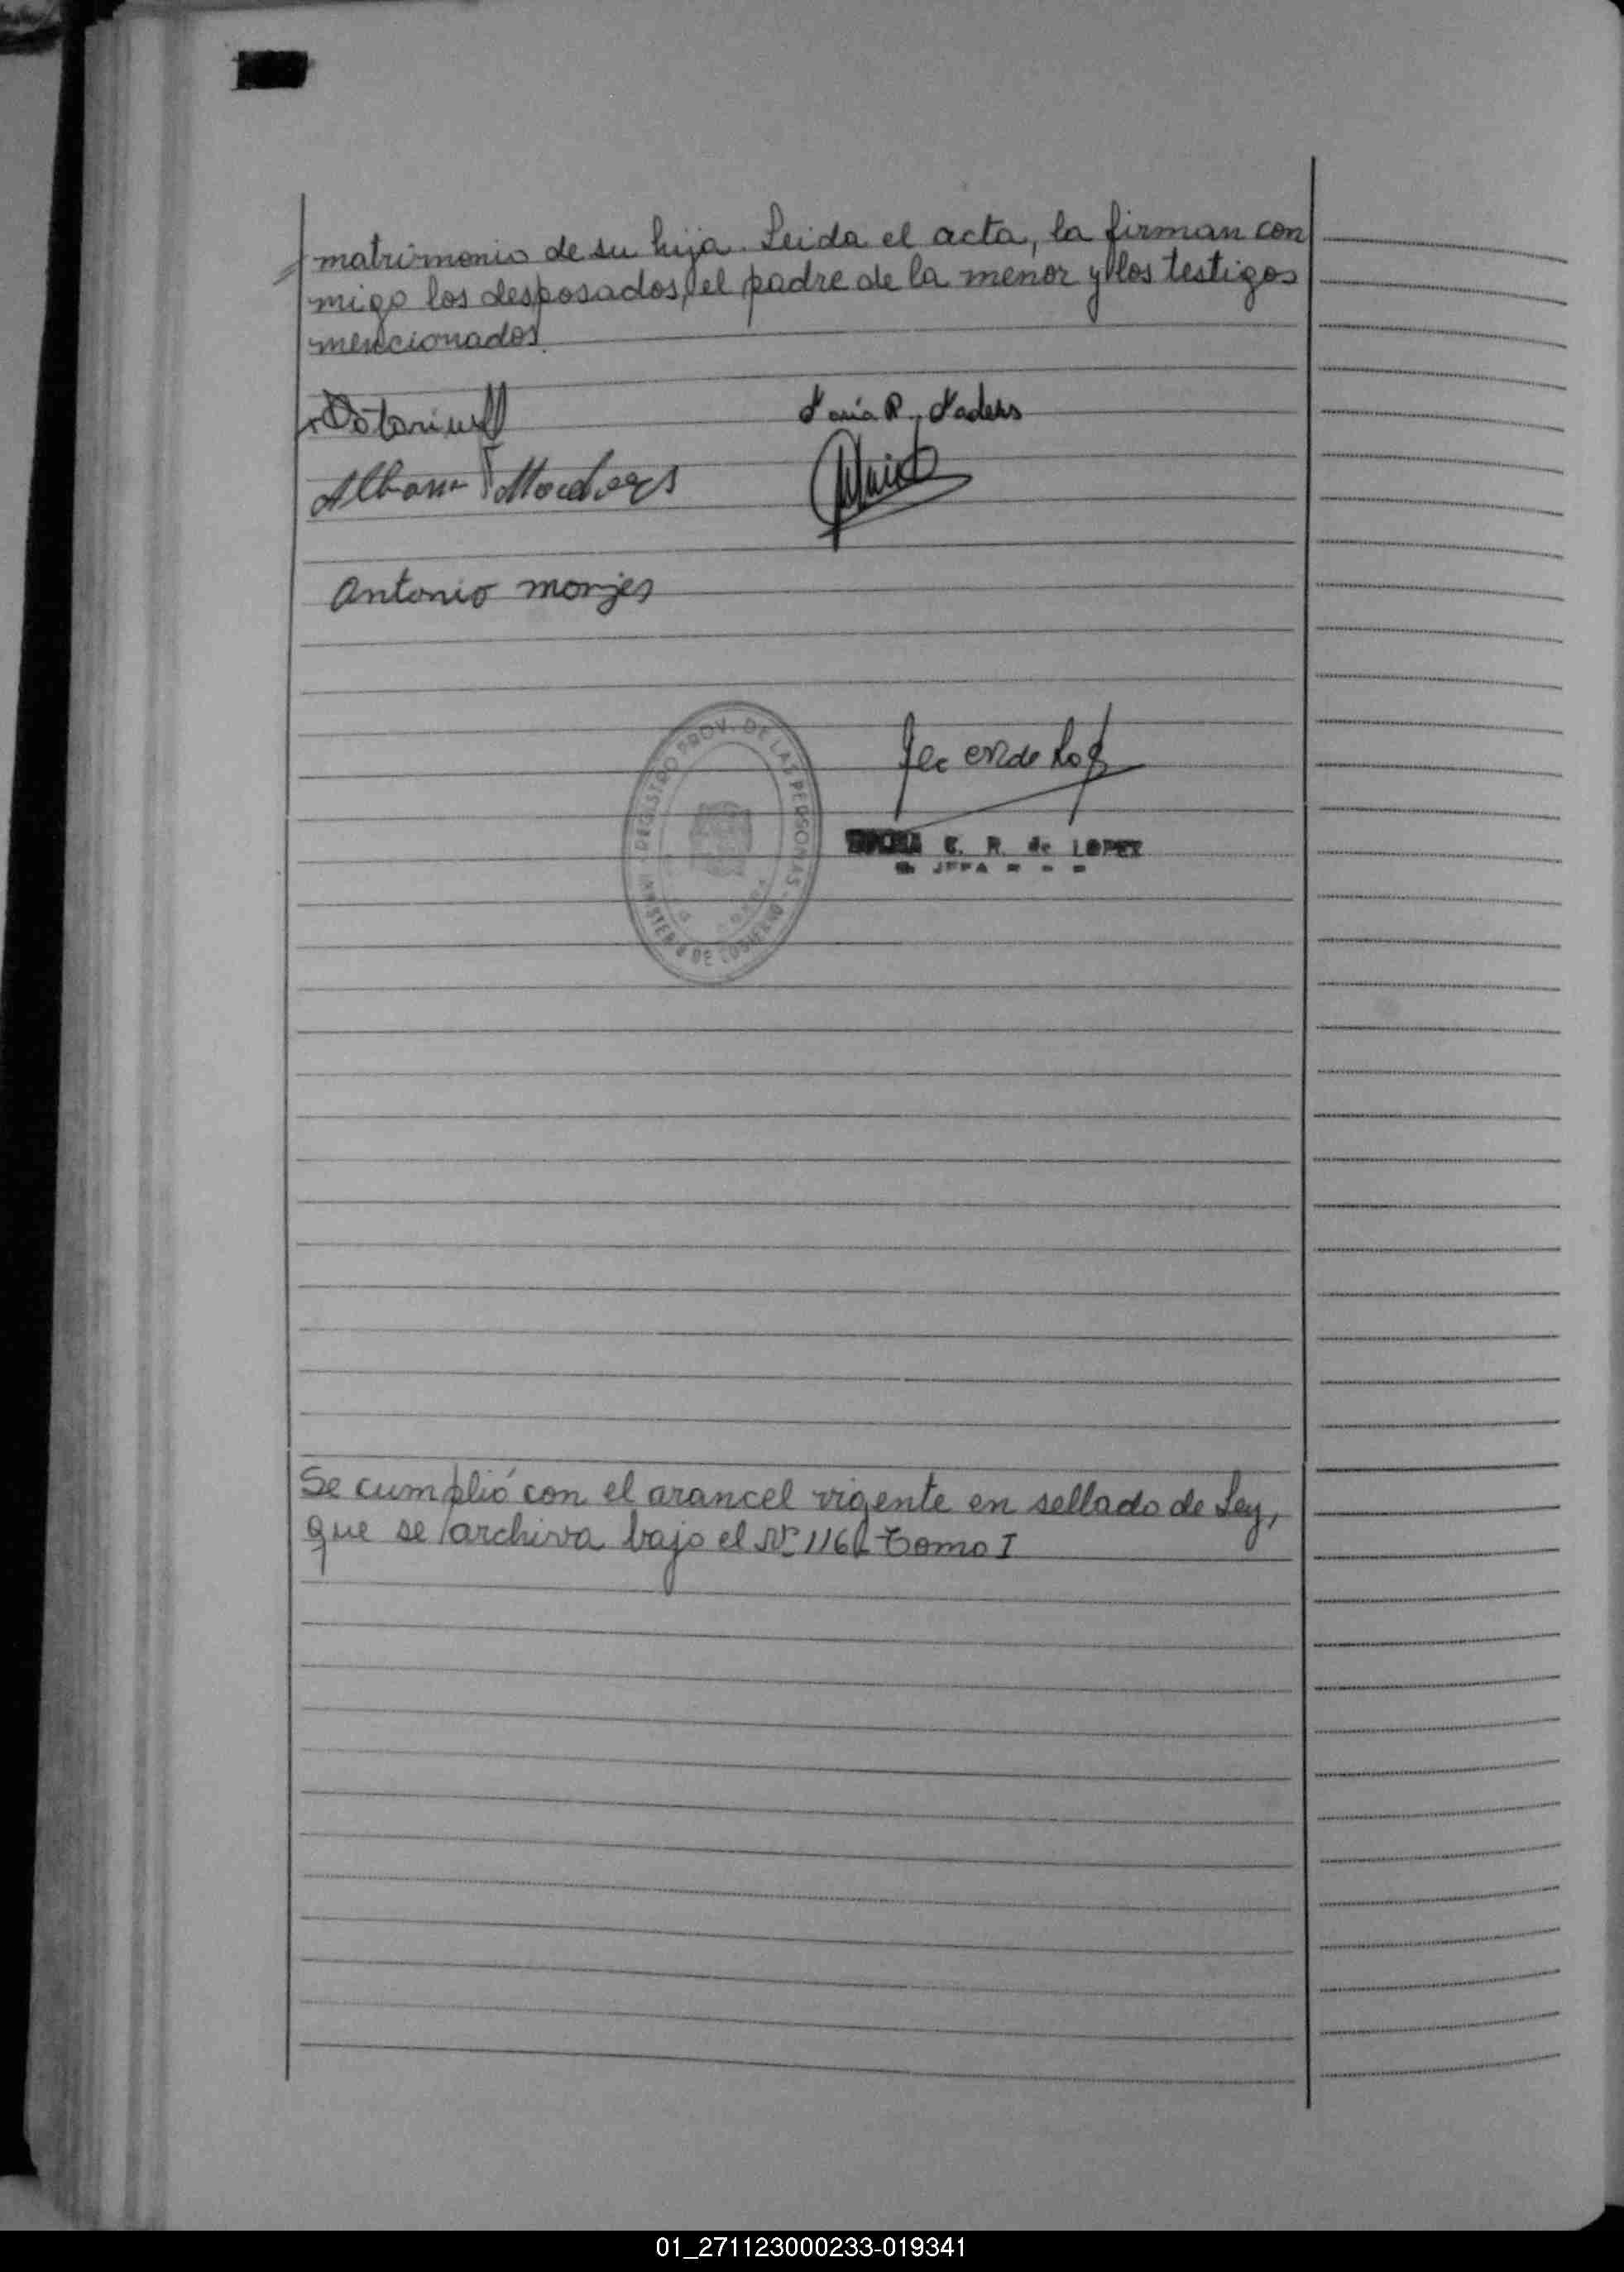 matrimonio de su hija. Leida el acta, la firman con
migo los desposados, el padre de la menor y los testigos
mencionados.
María R.
Antonio monjes
REGISTRO PROV. DE LAS PERSONAS - MINISTERIO DE GOBIERNO
E. R. de LOPEZ
JEFA
Se cumplió con el arancel vigente en sellado de Ley,
que se archiva bajo el Nº Tomo I
01_271123000233-019341